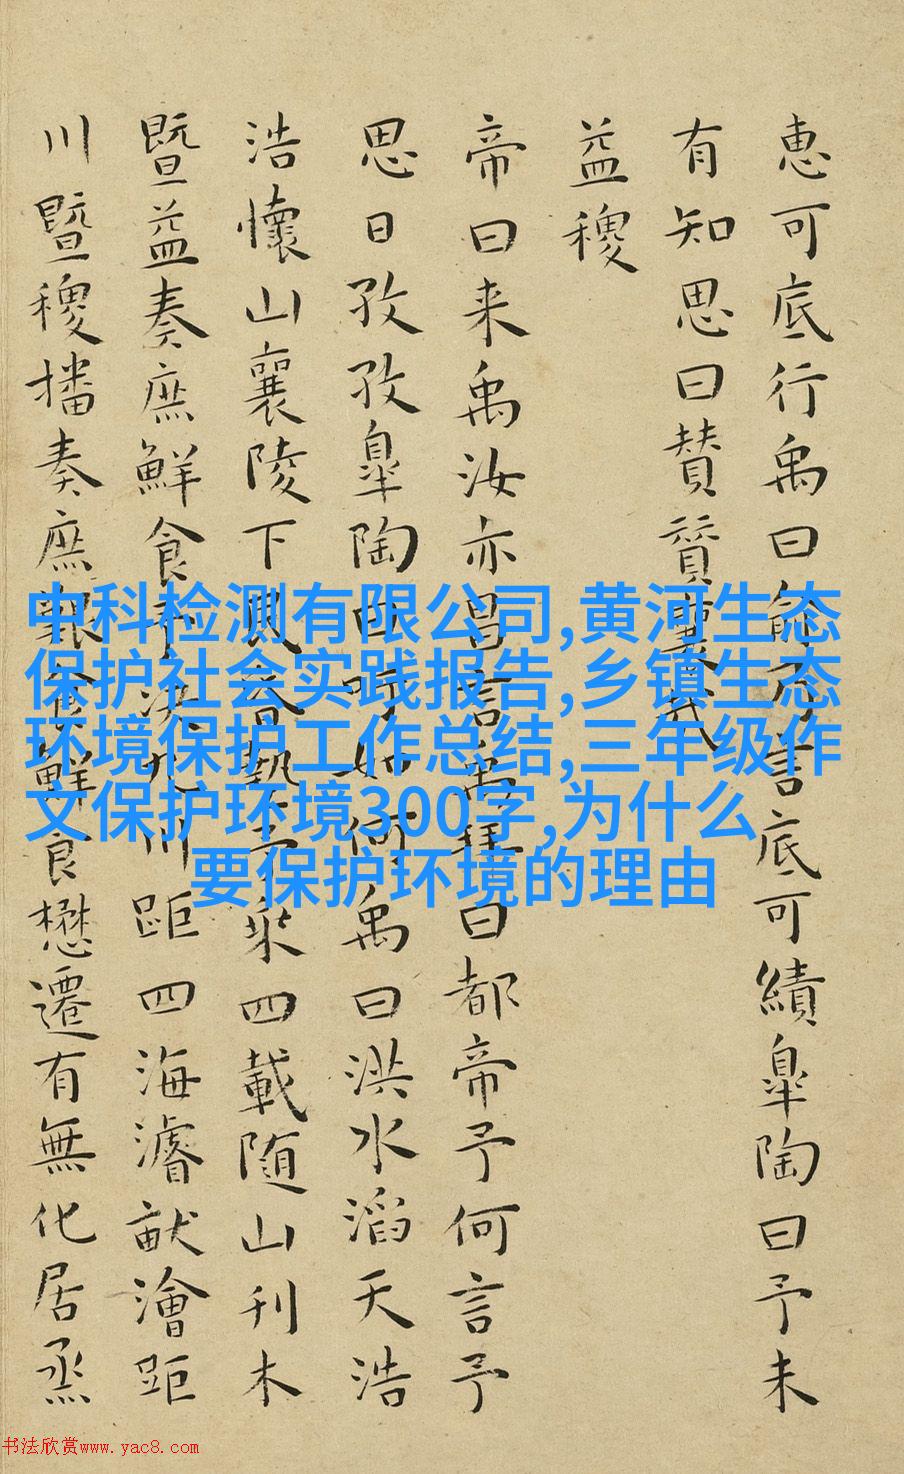 惠可底行禹曰俞乃言底可績皐陶曰予未
有知思曰賛賛襄哉
益稷
帝曰来禹汝亦昌言禹拜曰都帝予何言予
思日孜孜皐陶曰吁如何禹曰洪水滔天浩
浩懷山襄陵下民昏墊予乘四載随山刊木
暨益奏庶鮮食予決九川距四海濬畎澮距
川暨稷播奏庶艱食鮮食懋遷有無化居烝
中科检测有限公司,黄河生态
保护社会实践报告,乡镇生态
环境保护工作总结,三年级作
文保护环境300字,为什么
要保护环境的理由
书法欣赏www.yac8.com